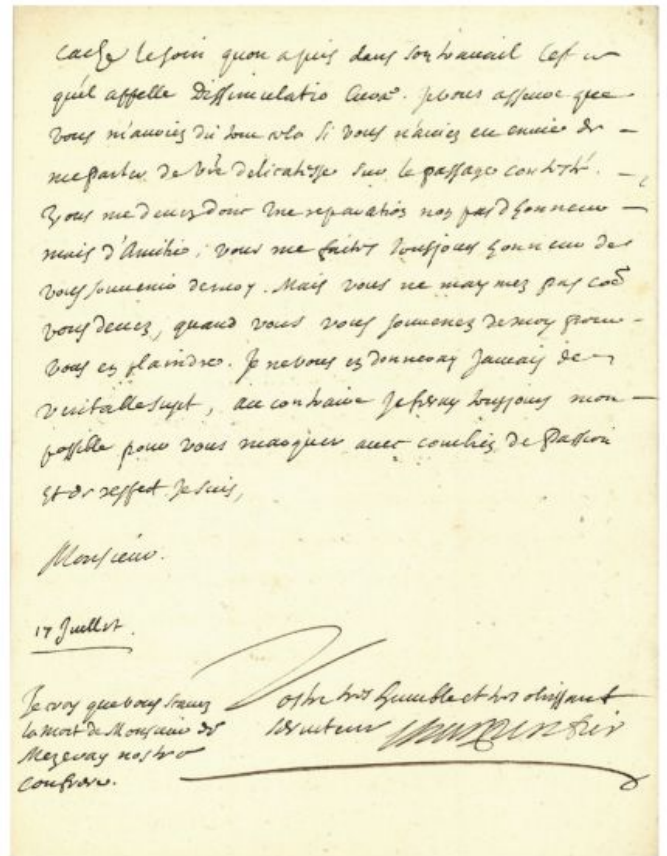 cache le soin quon a pris dans son travail Cest ce
quil appelle Dissimulatio Curæ. Je vous assure que
vous m'auriez dit tout cela si vous n'aviez eu envie de
me parler de v̄re delicatesse sur le passage contesté.
Vous me devez donc une reparation non pas d'honneur
mais d'Amitié, vous me faites tousjours honneur de
vous souvenir de moy. Mais vous ne m'aymez pas cōē
vous devez, quand vous vous souvenez de moy pour
vous en plaindre. Je ne vous en donneray Jamais de
veritable sujet, au contraire Je feray tousjours mon
possible pour vous marquer avec combien de Passion
Et de respect Je suis,
Monsieur.
17 Juillet.
Vostre tres humble et tres obeissant
serviteur Charpentier
Je croy que vous scavez
la mort de Monsieur de
Mezeray nostre
confrere.